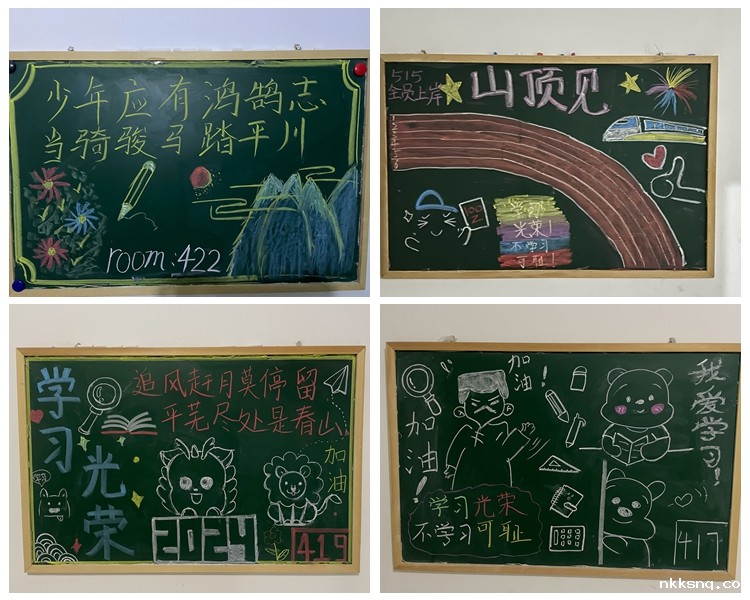 少年应有鸿鹄志
当骑骏马踏平川
room:422
515
全员上岸
山顶见
学习
光荣!
不学习
可耻!
学习
光荣
追风赶月莫停留
平芜尽处是春山
加油
2024
419
加油!
加油
我爱学习!
学习光荣
不学习可耻
417
nkksnq.co